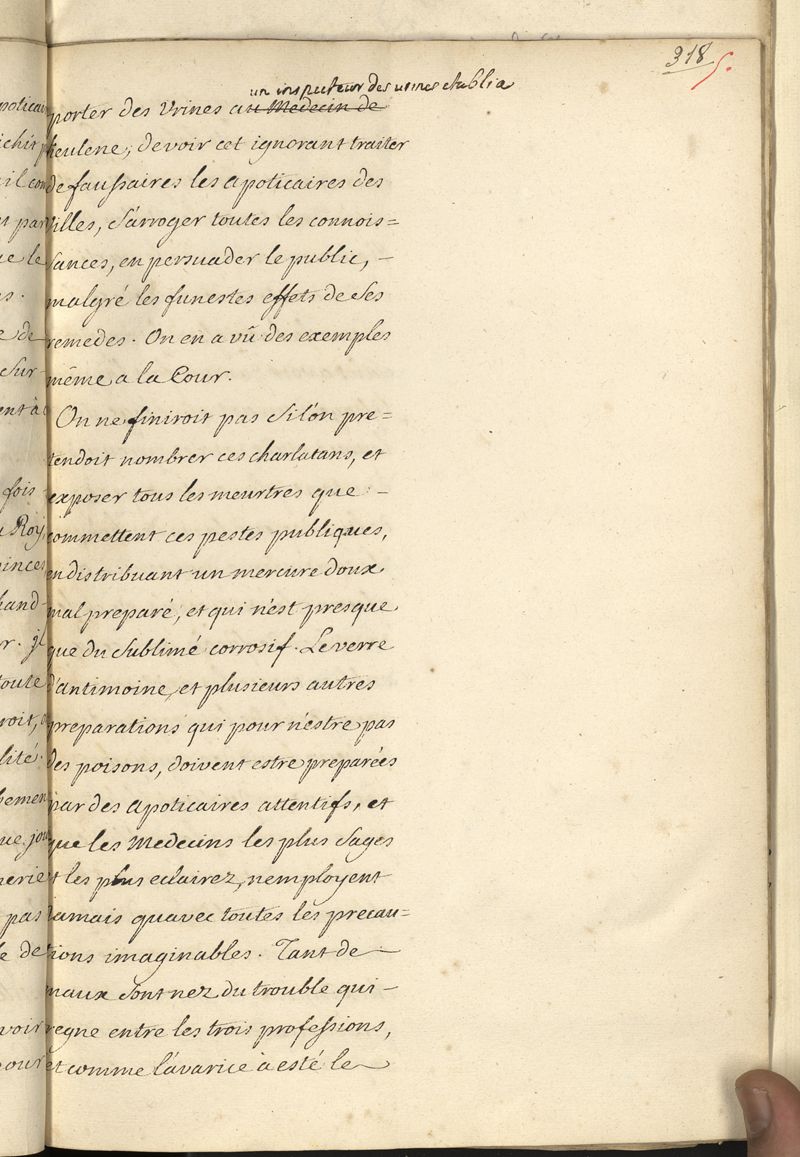 318 5.
un inspecteur des urines etabli a
porter des Vrines au Medecin de
heulene, de voir cet ignorant traiter
de faussaires les apoticaires des
Villes, s'arroger toutes les connois=
sances, en persuader le public, –
malgré les funestes effets de ses
remedes. On en a vû des exemples
même a la Cour.
On ne finiroit pas si l'on pre=
tendoit nombrer ces charlatans, et
exposer tous les meurtres que –
commettent ces pestes publiques,
en distribuant un mercure doux
mal preparé, et qui n'est presque
que du sublimé corrosif. Le verre
d'antimoine, et plusieurs autres
preparations qui pour n'estre pas
des poisons, doivent estre preparées
par des apoticaires attentifs, et
que les Medecins les plus sages
et les plus eclairez, nemployent
Jamais quavec toutes les precau=
tions imaginables. Tant de –
maux sont nez du trouble qui –
regne entre les trois professions,
et comme l'avarice à esté le